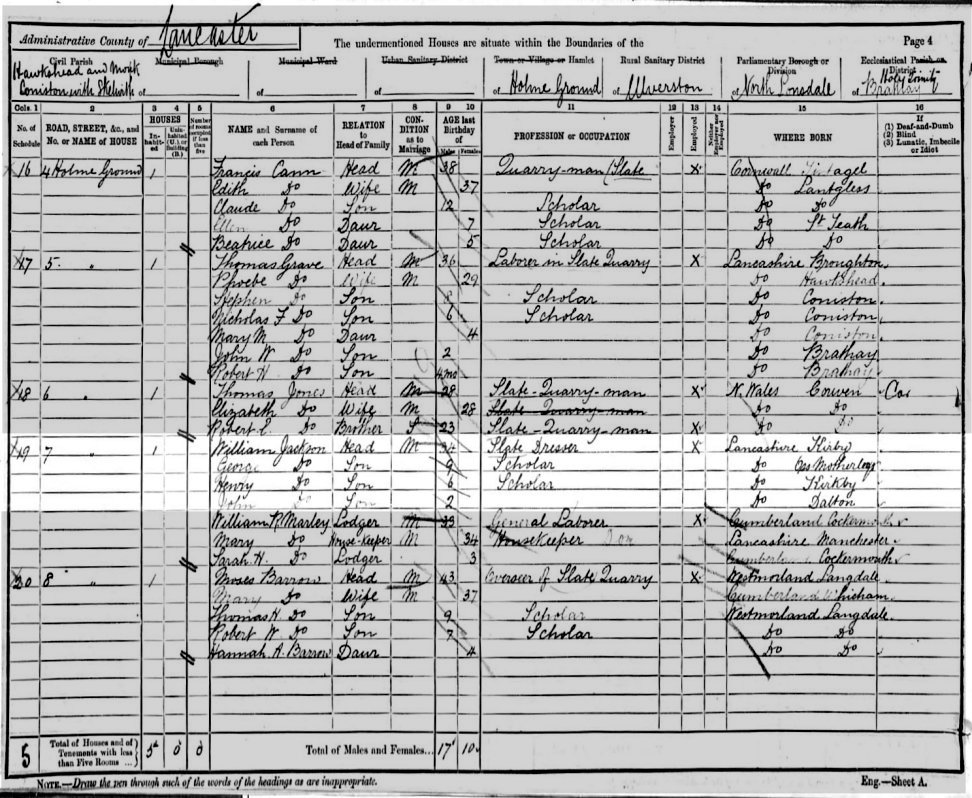 Administrative County of Lancaster The undermentioned Houses are situate within the Boundaries of the Page 4
Civil Parish Municipal Borough Municipal Ward Urban Sanitary District Town or Village or Hamlet Rural Sanitary District Parliamentary Borough or Division Ecclesiastical Parish or District
Hawkshead and Monk Coniston with Skelwith of of of of Holme Ground of Ulverston of North Lonsdale of Holy Trinity Brathay
Cols. 1 2 3 4 5 6 7 8 9 10 11 12 13 14 15 16
No. of Schedule ROAD, STREET, &c., and No. or NAME of HOUSE HOUSES Inhabited Uninhabited (U.) or Building (B.) Number of rooms occupied if less than five NAME and Surname of each Person RELATION to Head of Family CONDITION as to Marriage AGE last Birthday of Males Females PROFESSION or OCCUPATION Employer Employed Neither Employer nor Employed WHERE BORN If (1) Deaf-and-Dumb (2) Blind (3) Lunatic, Imbecile or Idiot
16 4 Holme Ground 1 Francis Cann Head M 38 Quarry-man (Slate X Cornwall Tintagel
Edith Do Wife M 37 Do Lantgloss
Claude Do Son 12 Scholar Do Do
Ellen Do Daur 7 Scholar Do St Teath
Beatrice Do Daur 5 Scholar Do Do
17 5 " 1 Thomas Grave Head M 36 Laborer in Slate Quarry X Lancashire Broughton
Phoebe Do Wife M 29 Do Hawkshead
Stephen Do Son 8 Scholar Do Coniston
Nicholas F Do Son 6 Scholar Do Coniston
Mary M Do Daur 4 Do Coniston
John W Do Son 2 Do Brathay
Robert H Do Son 4mo Do Brathay
18 6 " 1 Thomas Jones Head M 28 Slate-Quarry-man X N. Wales Corwen Cor
Elizabeth Do Wife M 28 Slate-Quarry-man Do Do
Robert E. Do Brother S 23 Slate-Quarry-man X Do Do
19 7 " 1 William Jackson Head M 34 Slate Dresser X Lancashire Kirby
George Do Son 9 Scholar Do
Henry Do Son 6 Scholar Do Kirkby
John Do Son 2 Do Dalton
William R. Marley Lodger M 33 General Laborer X Cumberland Cockermouth
Mary Do House-Keeper M 34 Housekeeper Dom Lancashire Manchester
Sarah H. Do Lodger 3 Cumberland Cockermouth
20 8 " 1 Moses Barrow Head M 43 Overseer of Slate Quarry X Westmorland Langdale
Mary Do Wife M 37 Cumberland Whicham
Thomas H. Do Son 9 Scholar Westmorland Langdale
Robert W Do Son 7 Scholar Do Do
Hannah A. Barrow Daur 4 Do Do
5 Total of Houses and of Tenements with less than Five Rooms ... 5 0 0 Total of Males and Females... 17 10
NOTE.—Draw the pen through such of the words of the headings as are inappropriate. Eng.—Sheet A.